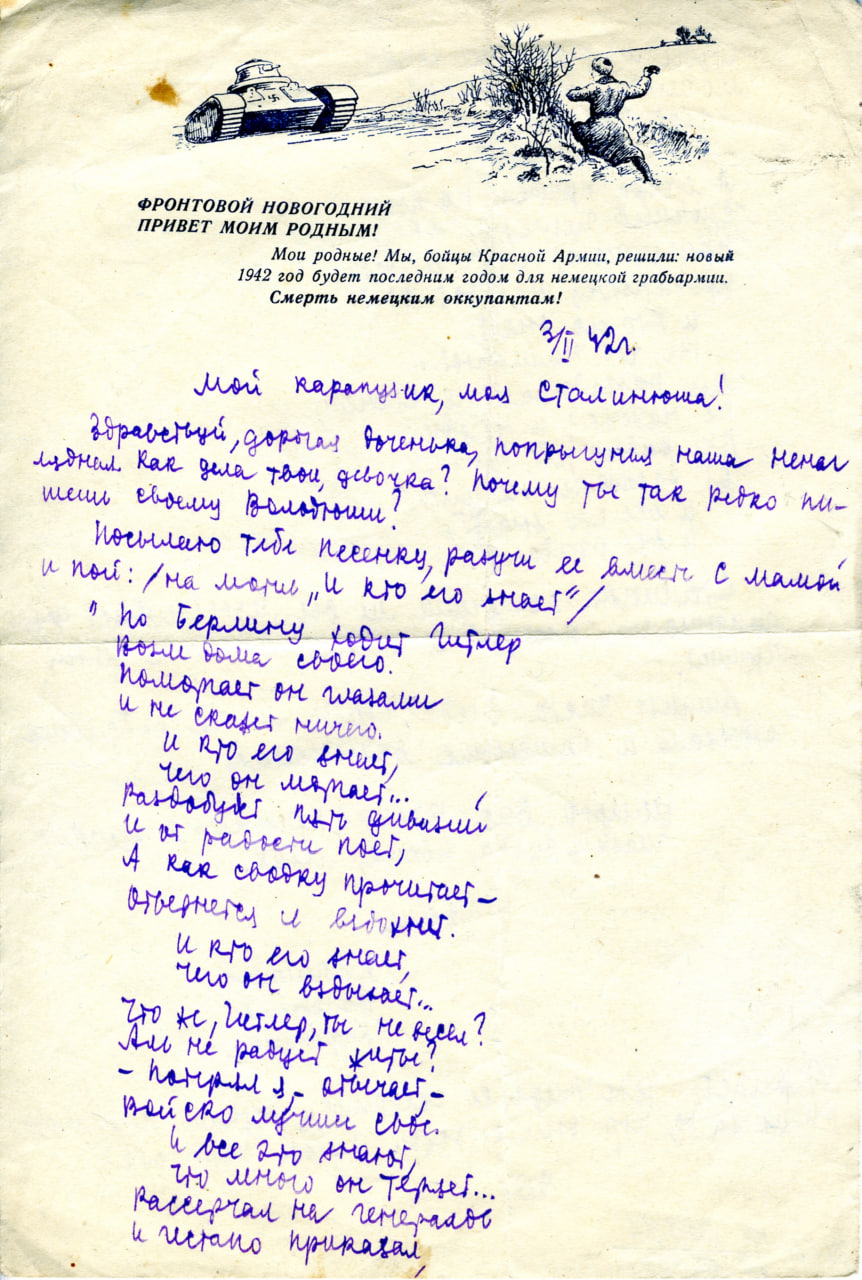 ФРОНТОВОЙ НОВОГОДНИЙ
ПРИВЕТ МОИМ РОДНЫМ!
Мои родные! Мы, бойцы Красной Армии, решили: новый
1942 год будет последним годом для немецкой грабьармии.
Смерть немецким оккупантам!
3/II 42г.
Мой карапузик, моя Сталинюша!
Здравствуй, дорогая доченька, попрыгуния наша ненаг
лядная. Как дела твои, девочка? Почему ты так редко пи-
шешь своему Володюши?
Посылаю тебе песенку, разучи ее вместе с мамой
и пой: /на мотив „И кто его знает"/
" По Берлину ходит Гитлер
Возле дома своего.
Поморгает он глазами
И не скажет ничего.
И кто его знает,
Чего он моргает...
Раздобудет пять дивизий
И от радости поет,
А как сводку прочитает —
Отвернется и вздохнет.
И кто его знает,
Чего он вздыхает...
Что ж, Гитлер, ты не весел?
Аль не радует житье?
- Потерял я, - отвечает, -
Войско лучшее свое.
И все это знают,
Что много он теряет...
Рассерчал на генералов
И гестапо приказал,